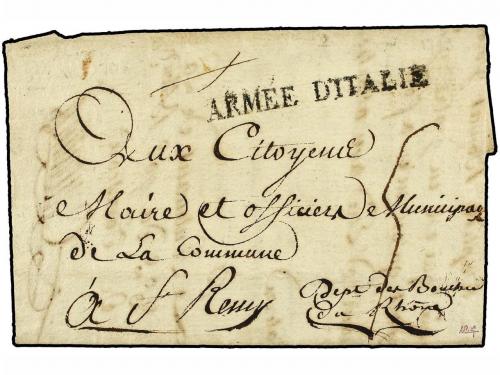 ARMÉE D'ITALIE
Aux Citoyens
Maire et officiers Municipaux
de La Commune
à St Remy
Dept. des Bouches
du Rhône